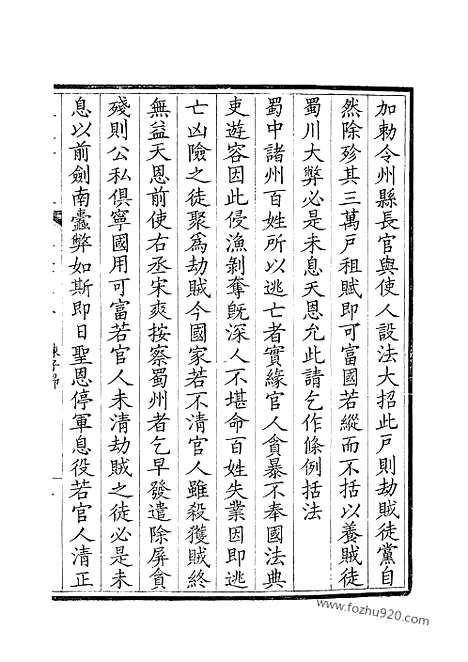 加勅令州縣長官與使人設法大招此戶則劫賊徒黨自
然除殄其三萬戶租賦即可富國若縱而不括以養賊徒
蜀川大弊必是未息天恩允此請乞作條例括法
蜀中諸州百姓所以逃亡者實緣官人貪暴不奉國法典
吏遊容因此侵漁剝奪旣深人不堪命百姓失業因即逃
亡凶險之徒聚爲劫賊今國家若不清官人雖殺獲賊終
無益天恩前使右丞宋爽按察蜀州者乞早發遣除屏貪
殘則公私俱寧國用可富若官人未清劫賊之徒必是未
息以前劍南蠹弊如斯即日聖恩停軍息役若官人清正
www.fozhu920.com